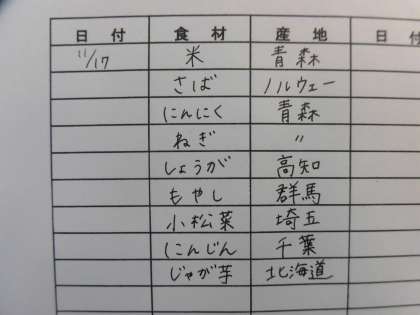 日付 食材 産地 日付
11/17 米 青森
さば ノルウェー
にんにく 青森
ねぎ 〃
しょうが 高知
もやし 群馬
小松菜 埼玉
にんじん 千葉
じゃが芋 北海道